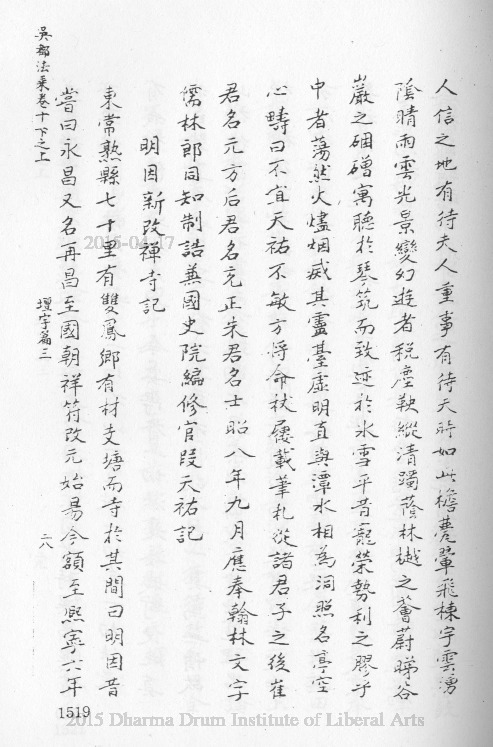 人信之地有待夫人重事有待天時如此檐甍翬飛棟宇雲湧
陰晴雨雲光景變幻遊者稅塵鞅縱清躅蔭林樾之薈蔚睇谷
巖之硱磳寓聽於琴筑而致迹於氷雪平昔寵榮勢利之膠乎
中者蕩然火燼烟滅其靈臺虛明直與潭水相為洞照名亭空
心疇曰不宜天祐不敏方將命袱屨載筆札從諸君子之後崔
君名元方后君名克正朱君名士昭八年九月應奉翰林文字
儒林郎同知制誥兼國史院編修官段天祐記
明因新改禪寺記
東常熟縣七十里有雙鳳鄉有材支塘而寺於其間曰明因昔
嘗曰永昌又名再昌至國朝祥符改元始易今額至熙寧六年
吳都法乘卷十下之上
壇宇篇三
二八
1519
2015-04-17
2015 Dharma Drum Institute of Liberal Arts